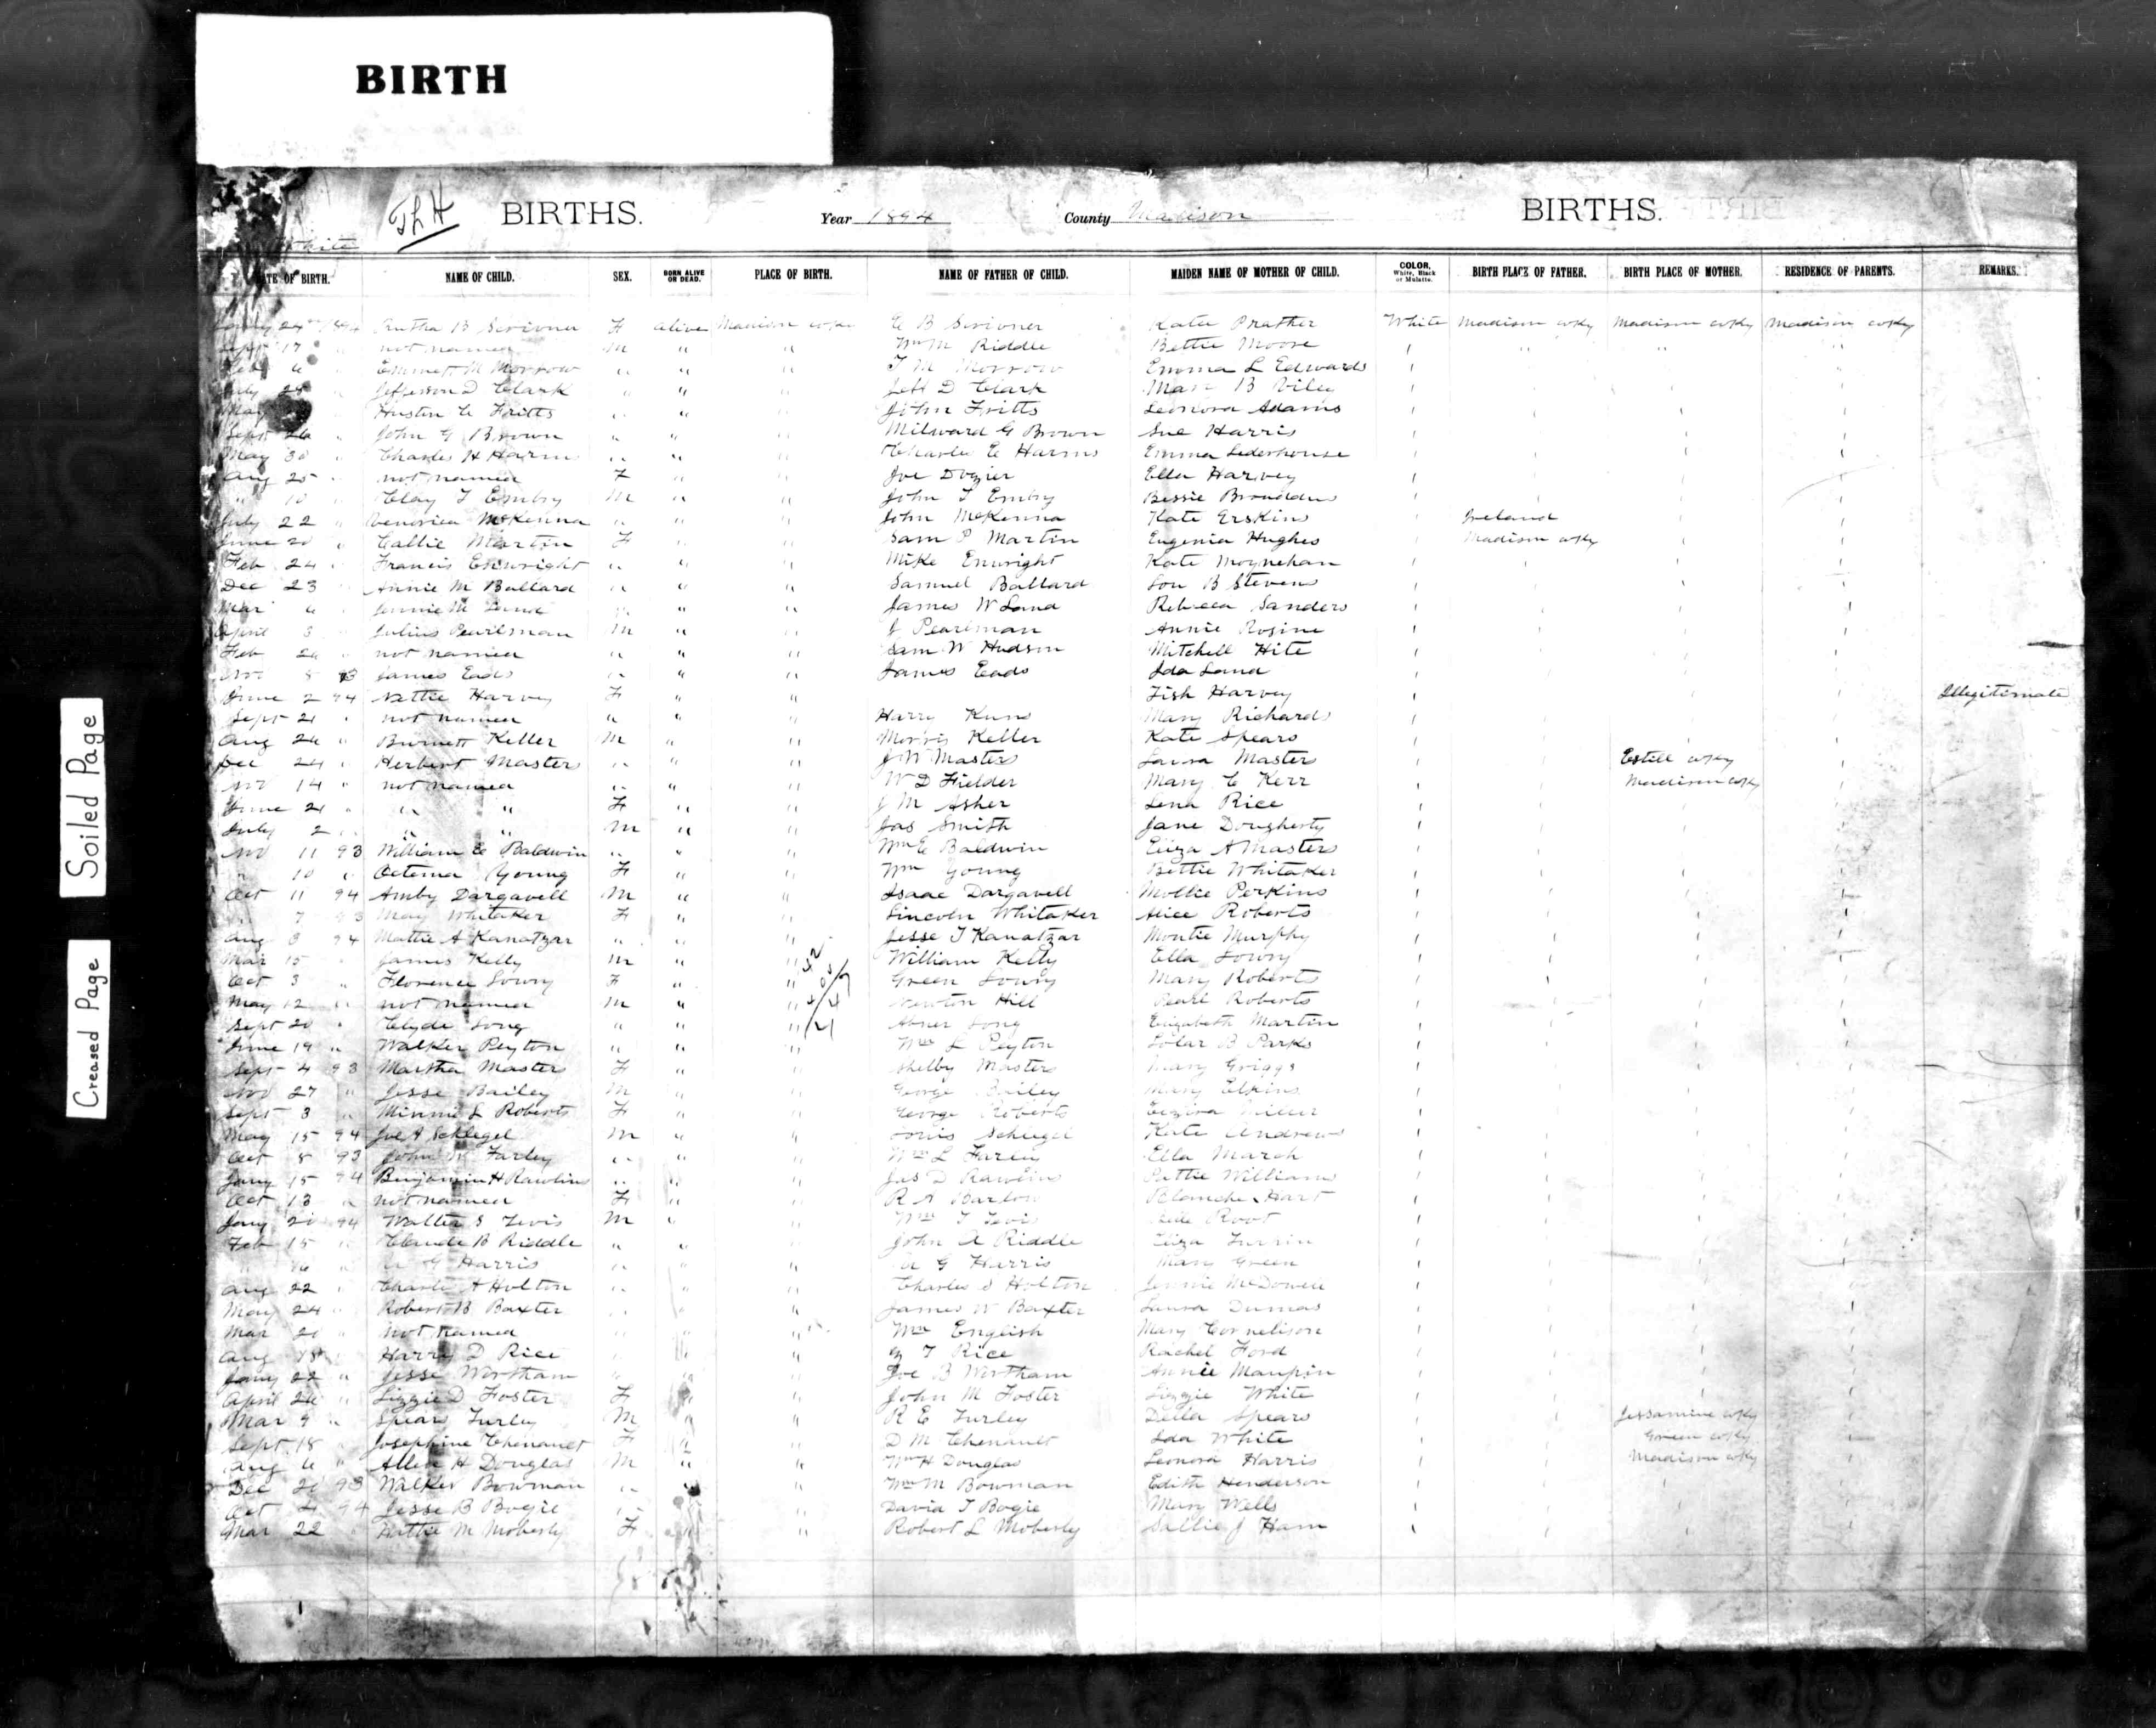 BIRTH
BIRTHS. Year 1894 County Madison BIRTHS.
White
DATE OF BIRTH. NAME OF CHILD. SEX. BORN ALIVE OR DEAD. PLACE OF BIRTH. NAME OF FATHER OF CHILD. MAIDEN NAME OF MOTHER OF CHILD. COLOR, White, Black or Mulatto. BIRTH PLACE OF FATHER. BIRTH PLACE OF MOTHER. RESIDENCE OF PARENTS. REMARKS.
B Scrivner F Alive Madison co Ky B Scrivner Kate Prather White Madison co Ky Madison co Ky Madison co Ky
Sept 17 " not named M " " Wm M Riddle Bettie Moore " " "
Feb 6 " Emmett M Morrow " " " T M Morrow Emma L Edwards
July " Jefferson D Clark " " " Jeff D Clark Mary B Viley
May Huston C Fritts " " " John Fritts Leonora Adams
Sept 26 " John G Brown " " " Milward G Brown Sue Harris
May 30 " Charles H Harms " " " Charles E Harms Emma Lederhouse
Aug 25 " not named F " " Joe Dozier Ella Harvey
" 10 " Clay T Embry M " " John T Embry Bessie Broaddus
July 22 " McKenna " " " John McKenna Kate Erskins Ireland
June 20 " Callie Martin F " " Sam P Martin Eugenia Hughes Madison co Ky
Feb 24 " Francis Enwright " " " Mike Enwright Kate Moynehan
Dec 23 Annie M Ballard " " " Samuel Ballard Lou B Stevens
Mar 6 " Jennie M Land " " " James W Land Rebecca Sanders
April 3 " Julius Pearlsman M " " J Pearlman Annie Rosine
Feb " not named " " " Sam W Hudson Mitchell Hite
Nov 8 93 James Eads " " " James Eads Ida Land
June 2 94 Nettie Harvey F " " Tish Harvey Illegitimate
Sept 21 " not named " " " Harry Kuns Mary Richards
Aug 24 " Burnett Keller M " " Morris Keller Kate Spears
Dec 24 " Herbert Masters " " " J W Masters Laura Masters Estill co Ky
Nov 14 " not named " " " W D Fielder Mary C Kerr Madison co Ky
June 21 " " " F " " J M Asher Lena Rice
July 2 " " " M " " Jas Smith Jane Dougherty
Nov 11 93 William E Baldwin " " " Wm E Baldwin Eliza A Masters
" 10 " Young F " " Wm Young Bettie Whitaker
Oct 11 94 Amby Dargavell M " " Isaac Dargavell Mollie Perkins
" 7 93 May Whitaker F " " Lincoln Whitaker Alice Roberts
Aug 3 94 Mattie A Kanatzar " " " Jesse T Kanatzar Montie Murphy
Mar 15 " James Kelly M " " William Kelly Ella Lowry
Oct 3 " Florence Lowry F " " Green Lowry Mary Roberts
May 12 " not named M " " Newton Hill Pearl Roberts
Sept 20 " Clyde Long " " " Abner Long Elizabeth Martin
June 19 " Walker Peyton " " " Wm L Peyton B Parks
Sept 4 93 Martha Masters F " " Shelby Masters Mary Griggs
Nov 27 " Jesse Bailey M " " George Bailey Mary Elkins
Sept 3 " Minnie L Roberts F " " George Roberts Miller
May 15 94 Joe A Schlegel M " " Louis Schlegel Kate Andrews
Oct 8 93 John M Farley " " " Wm L Farley Ella March
Jany 15 94 Benjamin H Rawlins " " " Jas D Rawlins Pattie Williams
Oct 13 " not named F " " R A Barlow Blanche Hart
Jany 20 94 Walter S Tevis M " " Wm T Tevis Root
Feb 15 " Claude B Riddle " " " John A Riddle Eliza
" 16 " G Harris " " " G Harris Mary Green
Aug 22 " Charles A Holton " " " Charles S Holton Jennie McDowell
May 24 " Robert B Baxter " " " James W Baxter Laura Dumas
Mar 20 " Not named " " " Wm English Mary Cornelison
Aug 18 " Harry D Rice " " " T Rice Rachel Ford
Jany 22 " Jesse Wortham " " " Joe B Wortham Annie Maupin
April 26 " Lizzie D Foster F " " John M Foster Lizzie White
Mar 9 " Spears Turley M " " R E Turley Della Spears Jessamine co Ky
Sept 18 " Josephine Chenault F " " D M Chenault Ida White Green co Ky
Aug 6 " Allen H Douglas M " " Wm H Douglas Leonora Harris Madison co Ky
Dec 20 93 Walker Bowman " " " Wm M Bowman Edith Henderson
Oct 4 94 Jesse B Bogie " " " David T Bogie Mary Wells
Mar 22 M Moberly F " " Robert L Moberly Sallie J Ham
Soiled Page
Creased Page